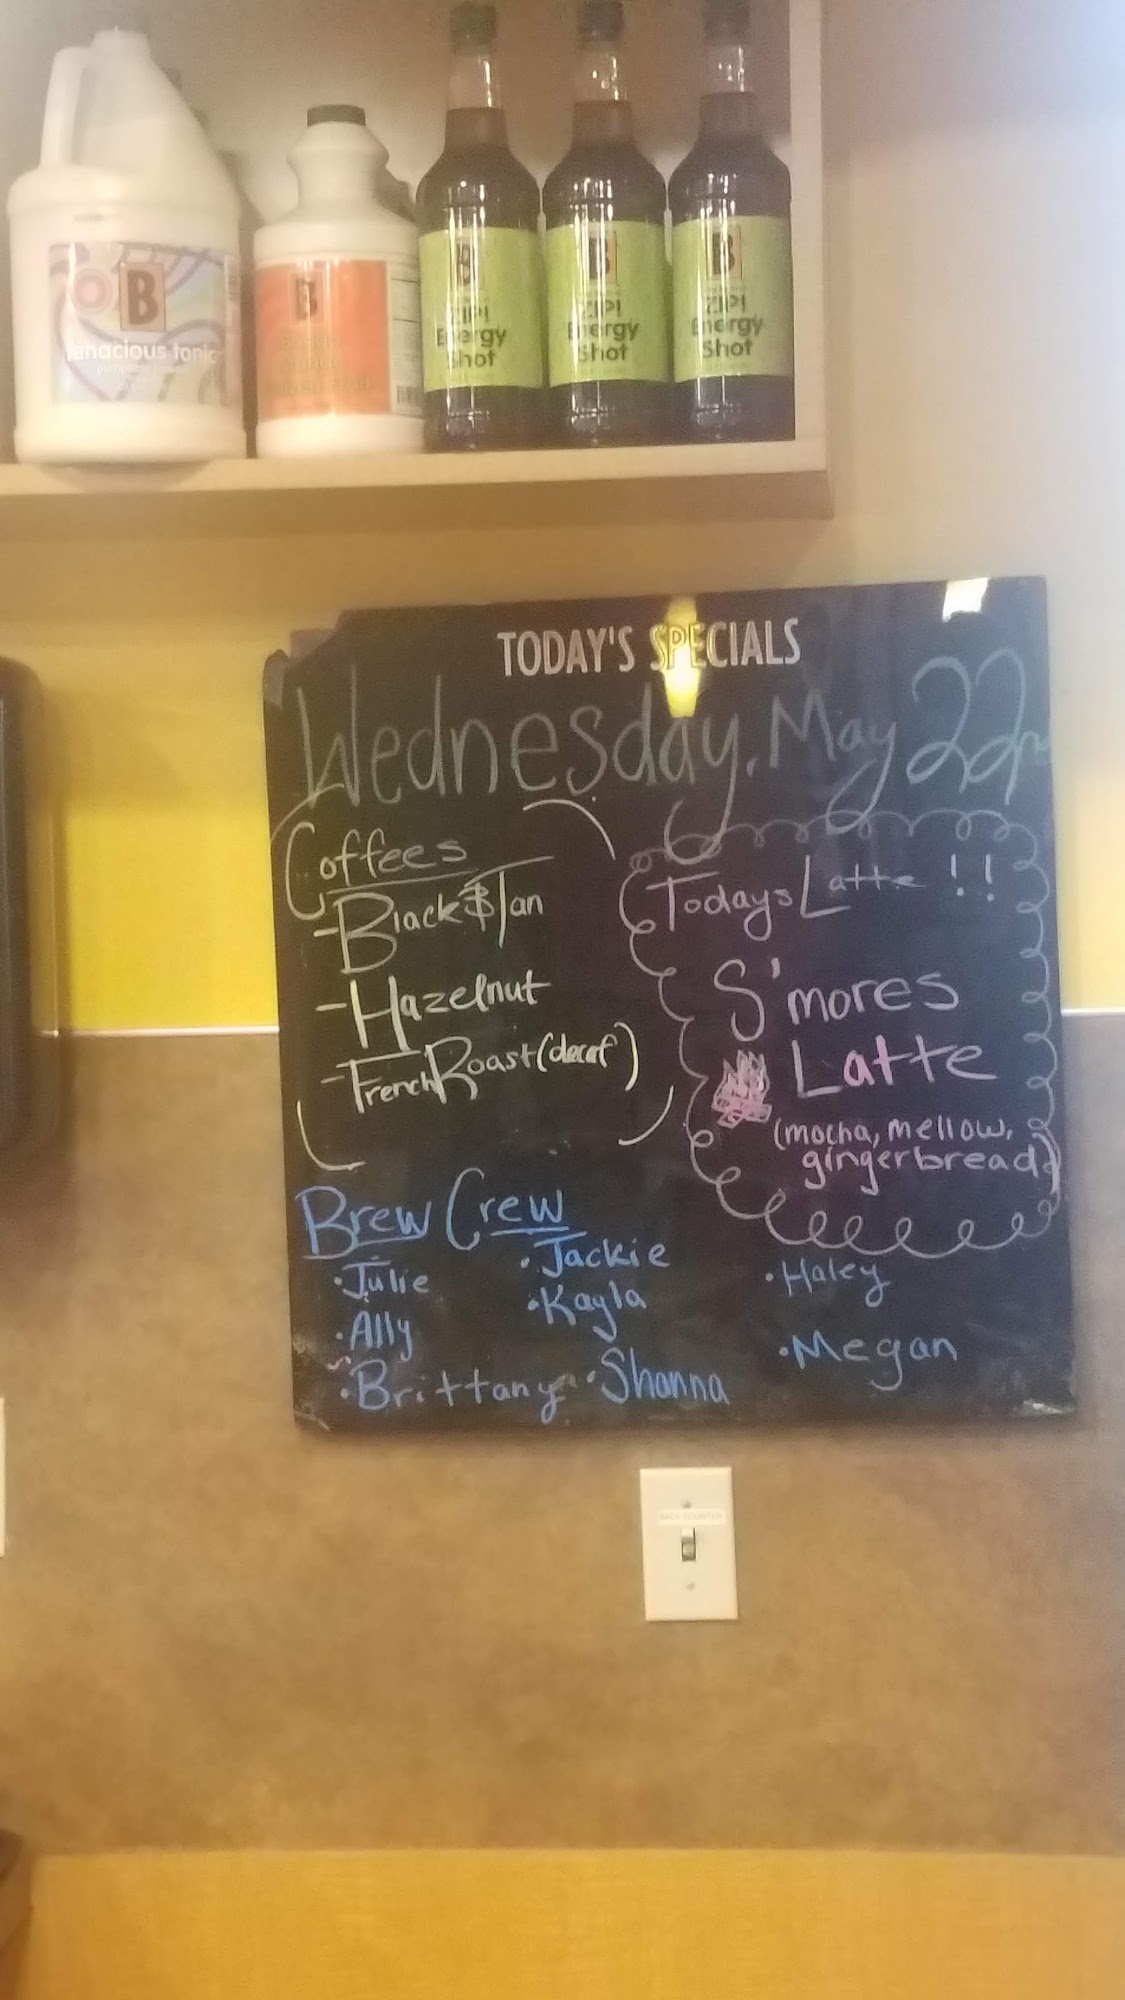 B
tenacious tonic
B
B
ZIP!
Energy
Shot
B
ZIP!
Energy
Shot
B
ZIP!
Energy
Shot
TODAY'S SPECIALS
Wednesday, May 22nd
Coffees
-Black & Tan
-Hazelnut
-French Roast (decaf)
Todays Latte !!
S'mores
Latte
(mocha, mellow,
gingerbread)
Brew Crew
•Julie
•Ally
•Brittany
•Jackie
•Kayla
•Shanna
•Haley
•Megan
BACK COUNTER